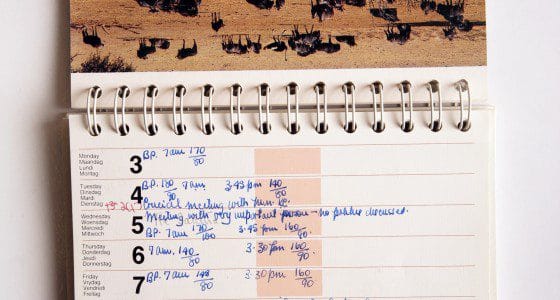 Monday
Maandag
Lundi
Montag
3
BP. 7am 170/80
Tuesday
Dinsdag
Mardi
Dienstag
4
BP. 180/90 7am 3.45 pm 140/80
Crucial meeting with
Wednesday
Woensdag
Mercredi
Mittwoch
5
Meeting with very important person – no politics discussed.
BP. 7am 170/100 3.45 pm 160/90.
Thursday
Donderdag
Jeudi
Donnerstag
6
7am. 140/80 3.30 pm 160/90.
Friday
Vrydag
Vendredi
Freitag
7
BP. 7am 148/80 3.30 pm 160/90